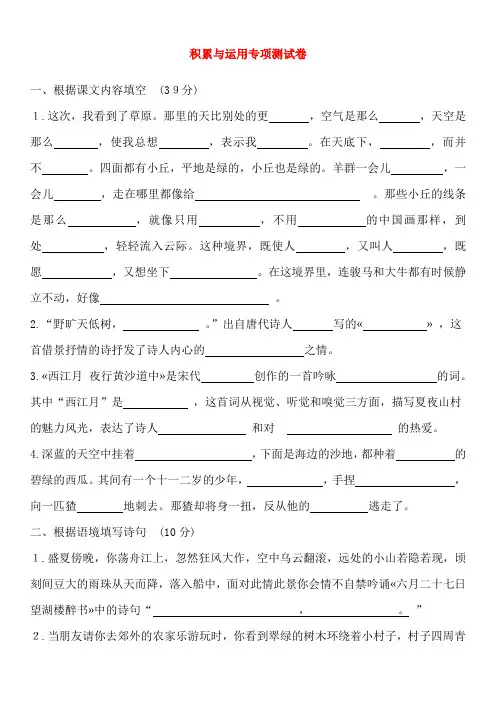 积累与运用专项测试卷
一、根据课文内容填空 (39分)
1.这次，我看到了草原。那里的天比别处的更______，空气是那么______，天空是
那么______，使我总想______，表示我______。在天底下，______，而并
不______。四面都有小丘，平地是绿的，小丘也是绿的。羊群一会儿______，一
会儿______，走在哪里都像给____________________ 。那些小丘的线条
是那么________，就像只用________，不用________的中国画那样，到
处________，轻轻流入云际。这种境界，既使人______，又叫人______，既
愿________，又想坐下__________。在这境界里，连骏马和大牛都有时候静
立不动，好像____________________ 。
2.“野旷天低树，__________ 。”出自唐代诗人____写的«________» ，这
首借景抒情的诗抒发了诗人内心的____________之情。
3.«西江月 夜行黄沙道中»是宋代______创作的一首吟咏____________的词。
其中“西江月”是________ ，这首词从视觉、听觉和嗅觉三方面，描写夏夜山村
的魅力风光，表达了诗人__________ 和对 ____________ 的热爱。
4.深蓝的天空中挂着______________，下面是海边的沙地，都种着______的
碧绿的西瓜。其间有一个十一二岁的少年，________，手捏____________，
向一匹猹______地刺去。那猹却将身一扭，反从他的______逃走了。
二、根据语境填写诗句 (10分)
1.盛夏傍晚，你荡舟江上，忽然狂风大作，空中乌云翻滚，远处的小山若隐若现，顷
刻间豆大的雨珠从天而降，落入船中，面对此情此景你会情不自禁吟诵«六月二十七日
望湖楼醉书»中的诗句“__________________，____________。 ”
2.当朋友请你去郊外的农家乐游玩时，你看到翠绿的树木环绕着小村子，村子四周青